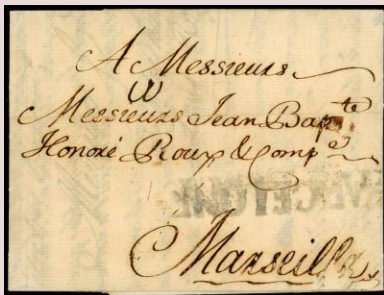 A Messieurs
W
Messieurs Jean Bap^te
Honoré Roux & Comp^e
Marseille